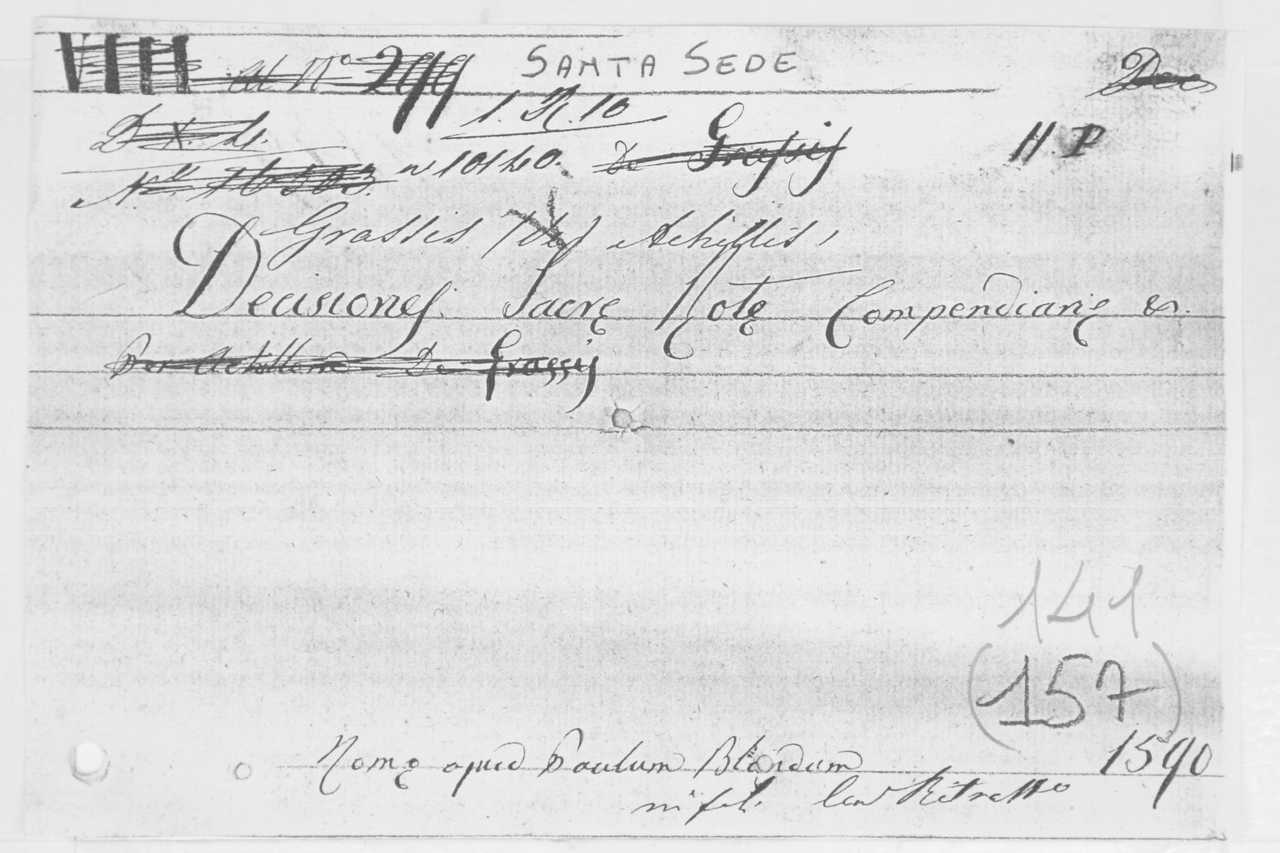 al N.º 299 SANTA SEDE Dec
1. R. 10
n 10140. De Grassis H P
Grassis Achilles,
Decisiones Sacrę Rotę Compendiarię &.
Per Achillem De Grassis
141
(157)
Romę apud Paulum Blandum 1590
in fol. Con Ritratto